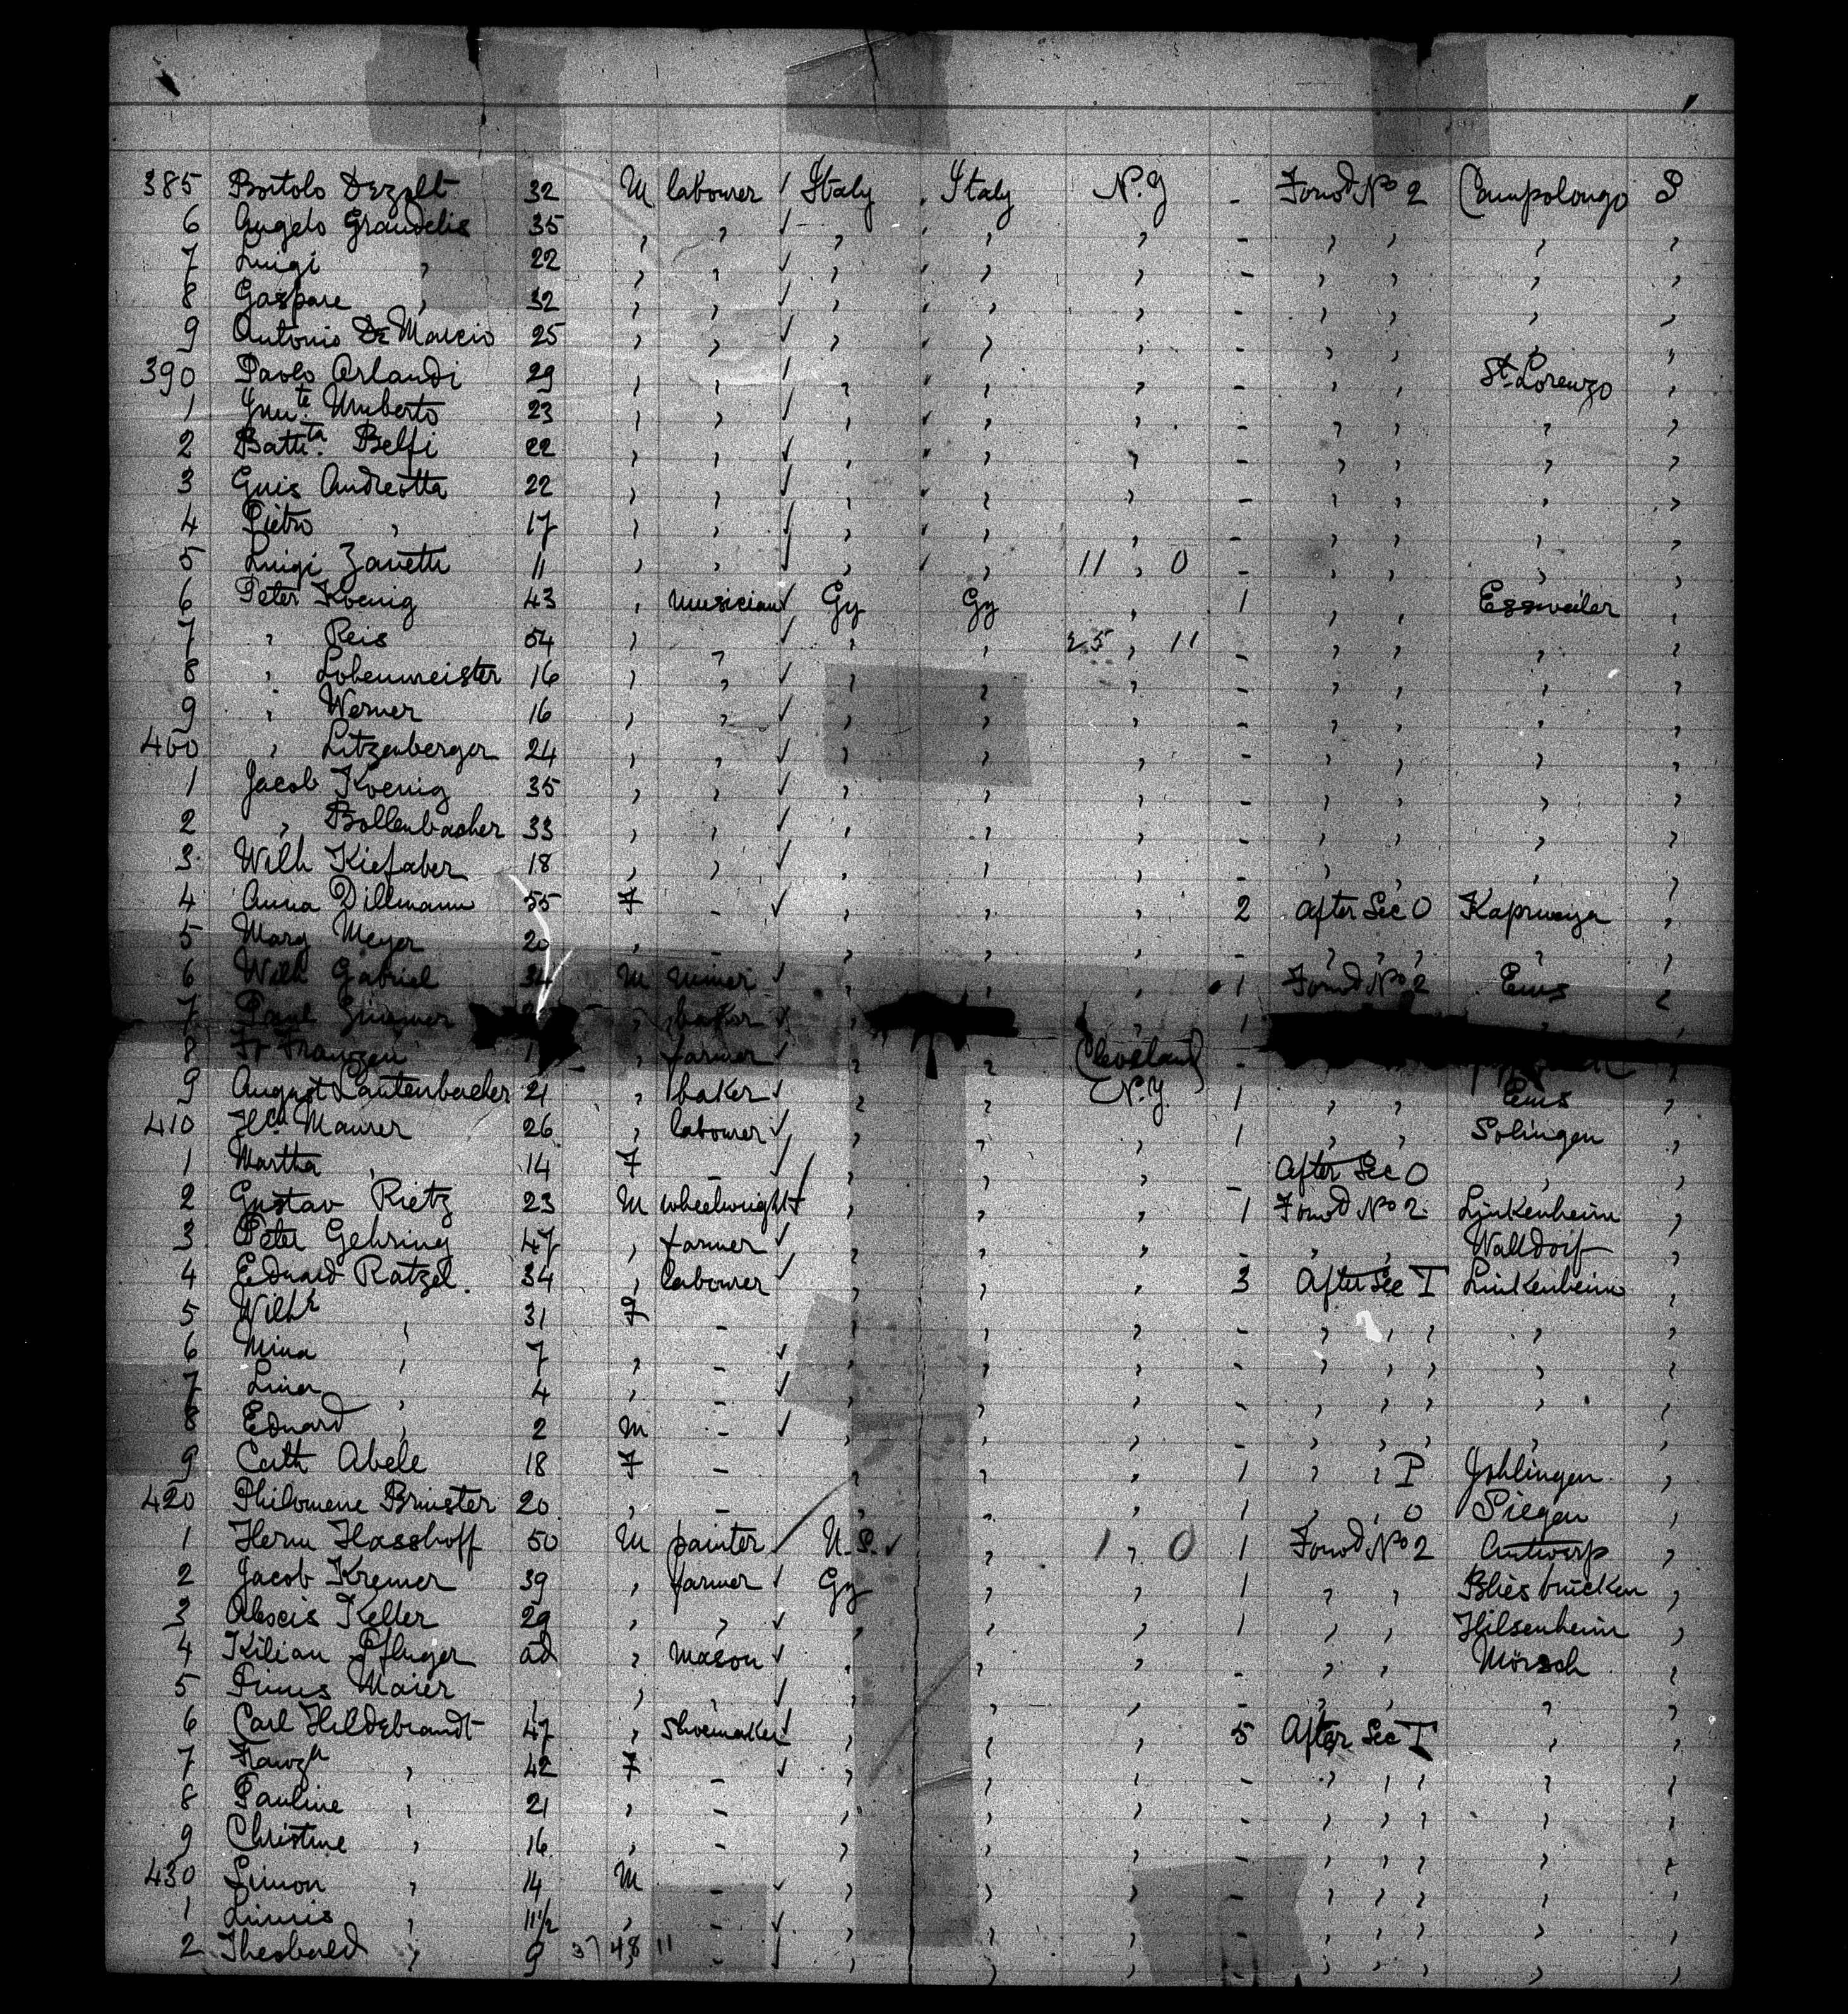 385 Bortolo Dezolt 32 M labourer ✓ Italy , Italy N.Y - Forwd No 2 Campolongo S
6 Angelo Grandelis 35 , , ✓ , , , - , , , ,
7 Luigi , 22 , , ✓ , , , - , , , ,
8 Gaspare , 32 , , ✓ , , , - , , , ,
9 Antonio De Marcio 25 , , ✓ , , , - , , , ,
390 Paolo Orlandi 29 , , ✓ , , , - , , St. Lorenzo ,
1 Umberto 23 , , ✓ , , , - , , , ,
2 Battta. Belfi 22 , , ✓ , , , - , , , ,
3 Guis Andreotta 22 , , ✓ , , , - , , , ,
4 Pietro , 17 , , ✓ , , , - , , , ,
5 Luigi Zanetti 11 , , ✓ , , 11 , 0 - , , , ,
6 Peter Koenig 43 , musician ✓ Gy Gy , 1 , , Essweiler ,
7 , Reis 54 , , ✓ , , 25 , 11 - , , , ,
8 , Lobenmeister 16 , , ✓ , , , - , , , ,
9 , Werner 16 , , ✓ , , , - , , , ,
400 , Litzenberger 24 , , ✓ , , , - , , , ,
1 Jacob Koenig 35 , , ✓ , , , - , , , ,
2 , Bollenbacher 33 , , ✓ , , , - , , , ,
3 Wilh Kiefaber 18 , , ✓ , , , - , , , ,
4 Anna Dillmann 55 F - ✓ , , , 2 After Sec O ,
5 Marg Meyer 20 , - , , , - , , , , ,
6 Wilh Gabriel 34 M miner ✓ , , , 1 Forwd No 2 Ems ,
7 Paul , baker ✓ , , , 1 ,
8 Fr Franzen , farmer ✓ , , Cleveland - ,
9 August Lautenbacher 21 , baker ✓ , , N.Y. 1 , , Ems ,
410 Hch Maurer 26 , labourer ✓ , , , 1 , , Solingen ,
1 Martha , 14 F ✓ , , , - After Sec O , ,
2 Gustav Rietz 23 M wheelwright ✓ , , , 1 Forwd No 2 Linkenheim ,
3 Peter Gehring 47 , farmer ✓ , , , - , , Walldorf ,
4 Eduard Ratzel. 34 , labourer ✓ , , , 3 After Sec T Linkenheim ,
5 Wilhe , 31 F - , , , - , , , , ,
6 Mina , 7 , - ✓ , , , - , , , , ,
7 Lina , 4 , - ✓ , , , - , , , , ,
8 Eduard , 2 M - ✓ , , , - , , , , ,
9 Cath Abele 18 F - , , , 1 , , P Johlingen ,
420 Philomene Brinster 20 , - , , , 1 , , O Siegen ,
1 Herm Hasshoff 50 M painter ✓ U.S. ✓ , 1 , 0 1 Forwd No 2 Antwerp ,
2 Jacob Kremer 39 , farmer ✓ Gy , , 1 , , Bliesbrücken ,
3 Alocis Keller 29 , , ✓ , , , 1 , , Hilsenheim ,
4 Kilian Pfluger ad , mason ✓ , , , - , , Mörsch ,
5 Maier , , , ✓ , , , - , , , ,
6 Carl Hildebrandt 47 , shoemaker ✓ , , , 5 After Sec T , ,
7 Franzka , 42 F - ✓ , , , - , , , , ,
8 Pauline , 21 , - , , , - , , , , ,
9 Christine , 16 , - , , , - , , , , ,
430 Simon , 14 M - ✓ , , , - , , , , ,
1 , 11 1/2 , - ✓ , , , - , , , , ,
2 Theobald , 9 37 48 11 - ✓ , , , - , , , , ,